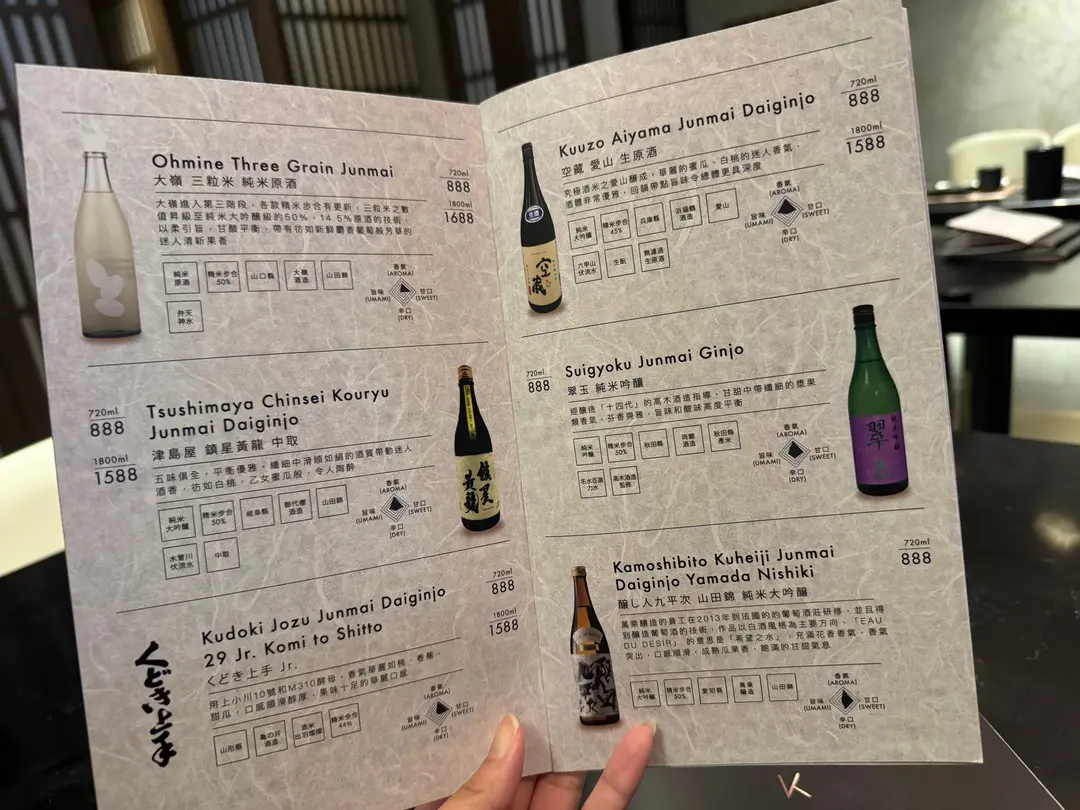 Ohmine Three Grain Junmai
大嶺 三粒米 純米原酒
720ml
888
1800ml
1688
大嶺進入第三階段，各款精米步合有更新，三粒米之數
值昇級至純米大吟釀級的50%，14.5%原酒的技術，
以柔引旨，甘酸平衡，帶有彷如新鮮麝香葡萄般芳草的
迷人清新果香
純米
原酒
精米步合
50%
山口縣
大嶺
酒造
山田錦
弁天
神水
香氣
(AROMA)
旨味
(UMAMI)
甘口
(SWEET)
辛口
(DRY)
720ml
888
1800ml
1588
Tsushimaya Chinsei Kouryu
Junmai Daiginjo
津島屋 鎮星黃龍 中取
五味俱全，平衡優雅，纖細中滑順如絹的酒質帶動迷人
酒香，彷如白桃，乙女蜜瓜般，令人陶醉
純米
大吟釀
精米步合
50%
岐阜縣
御代櫻
酒造
山田錦
木曽川
伏流水
中取
香氣
(AROMA)
旨味
(UMAMI)
甘口
(SWEET)
辛口
(DRY)
鎮星
黃龍
くどき上手
Kudoki Jozu Junmai Daiginjo
29 Jr. Komi to Shitto
くどき上手 Jr.
720ml
888
1800ml
1588
用上小川10號和M310酵母，香氣華麗如桃、香蕉、
甜瓜，口感順滑醇厚，果味十足的華麗口感
山形縣
亀の井
酒造
酒米
出羽燦燦
精米步合
44%
香氣
(AROMA)
旨味
(UMAMI)
甘口
(SWEET)
辛口
(DRY)
Kuuzo Aiyama Junmai Daiginjo
空藏 愛山 生原酒
720ml
888
1800ml
1588
究極酒米之愛山釀成，華麗的蜜瓜、白桃的迷人香氣，
酒體非常優雅，回韻帶點旨味令總體更具深度
純米
大吟釀
精米步合
45%
兵庫縣
浜福鶴
酒造
愛山
六甲山
伏流水
生酛
無濾過
生原酒
香氣
(AROMA)
旨味
(UMAMI)
甘口
(SWEET)
辛口
(DRY)
生酒
空藏
720ml
888
Suigyoku Junmai Ginjo
翠玉 純米吟釀
經釀造「十四代」的高木酒造指導，甘甜中帶纖細的漿果
類香氣，芬香爽雅，旨味和酸味高度平衡
純米
吟釀
精米步合
50%
秋田縣
両關
酒造
秋田縣
產米
名水百選
力水
高木酒造
監修
香氣
(AROMA)
旨味
(UMAMI)
甘口
(SWEET)
辛口
(DRY)
純米吟醸
翠玉
Kamoshibito Kuheiji Junmai
Daiginjo Yamada Nishiki
醸し人九平次 山田錦 純米大吟釀
720ml
888
萬乘釀造的員工在2013年到法國的的葡萄酒莊研修，並且得
到釀造葡萄酒的技術，作品以白酒風格為主要方向，「EAU
DU DESIR」的意思是「希望之水」，充滿花香香氣，香氣
突出，口感順滑，成熟瓜果香，飽滿的甘甜氣息
純米
大吟釀
精米步合
50%
愛知縣
萬乘
釀造
山田錦
香氣
(AROMA)
旨味
(UMAMI)
甘口
(SWEET)
辛口
(DRY)